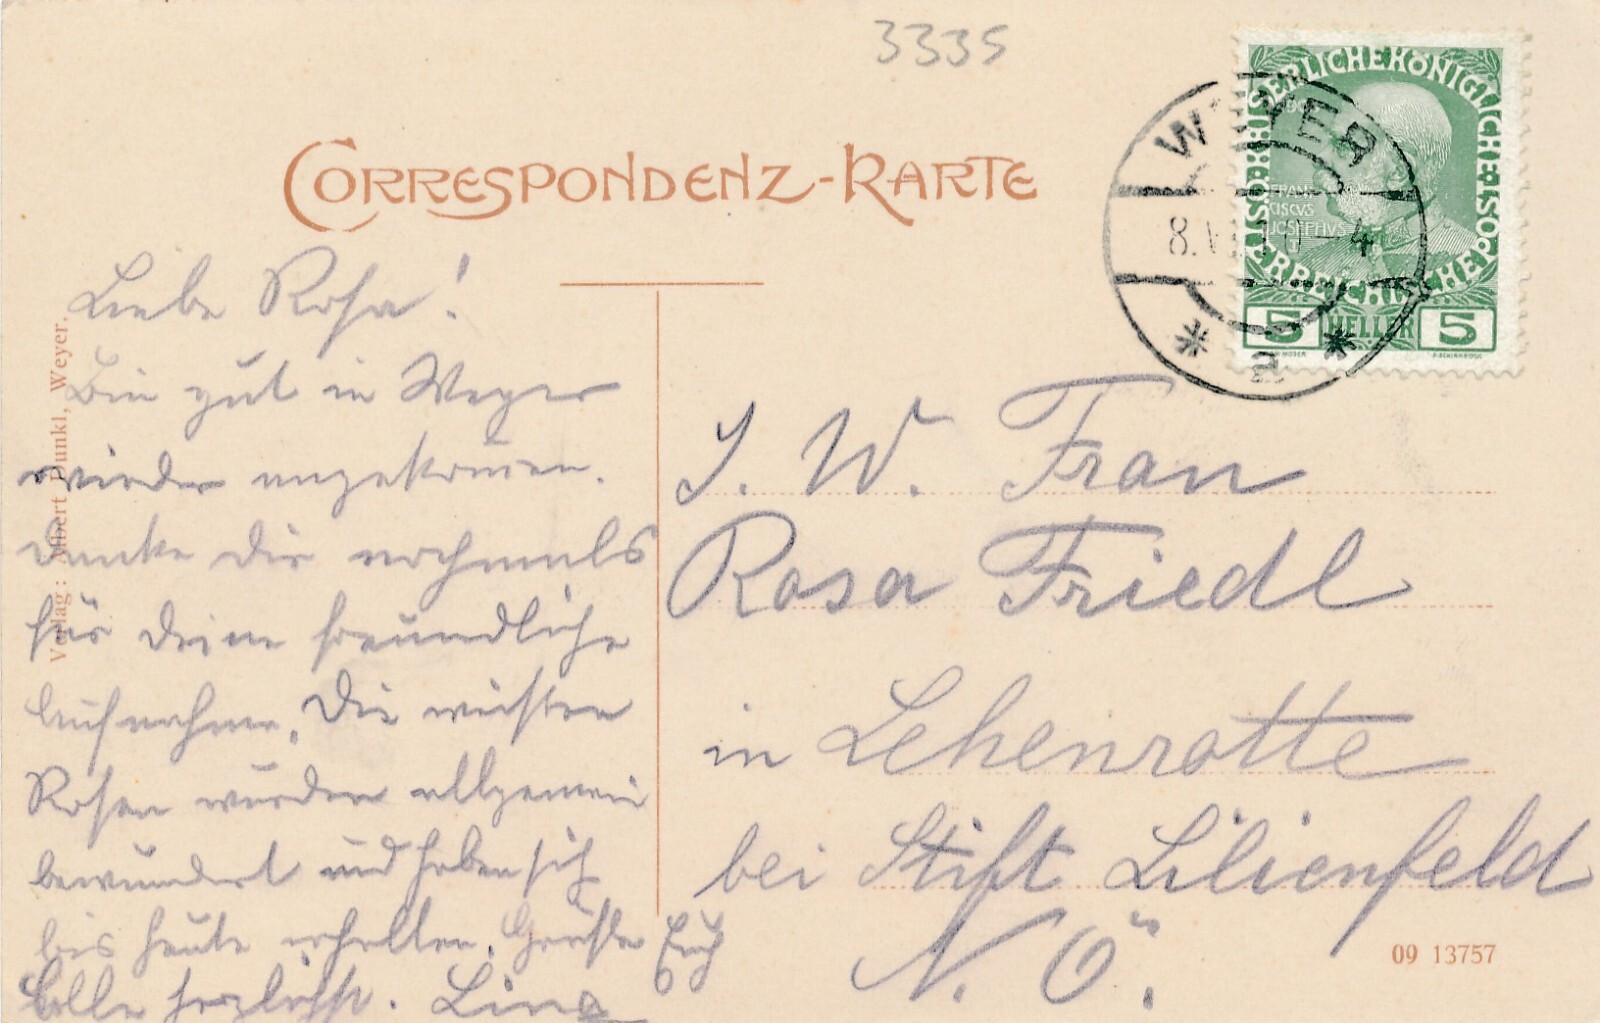 3335
CORRESPONDENZ-KARTE
KAISERLICHEKÖNIGLICHE
ÖSTERREICHISCHEPOST
FRAN
CISCVS
JOSEPHVS
5 HELLER 5
WEYER
8.V 10-4
* 2 *
Liebe Rosa!
Bin gut in Weyer
wieder angekommen.
danke dir nochmals
für deine freundliche
Aufnahme. Die weißen
Rosen wurden allgemein
bewundert und haben sich
bis heute erhalten. Grüße Euch
Alle herzlichst. Lina
I. W. Frau
Rosa Friedl
in Lehenrotte
bei Stift Lilienfeld
N. Ö.
Verlag: Albert Dunkl, Weyer.
09 13757